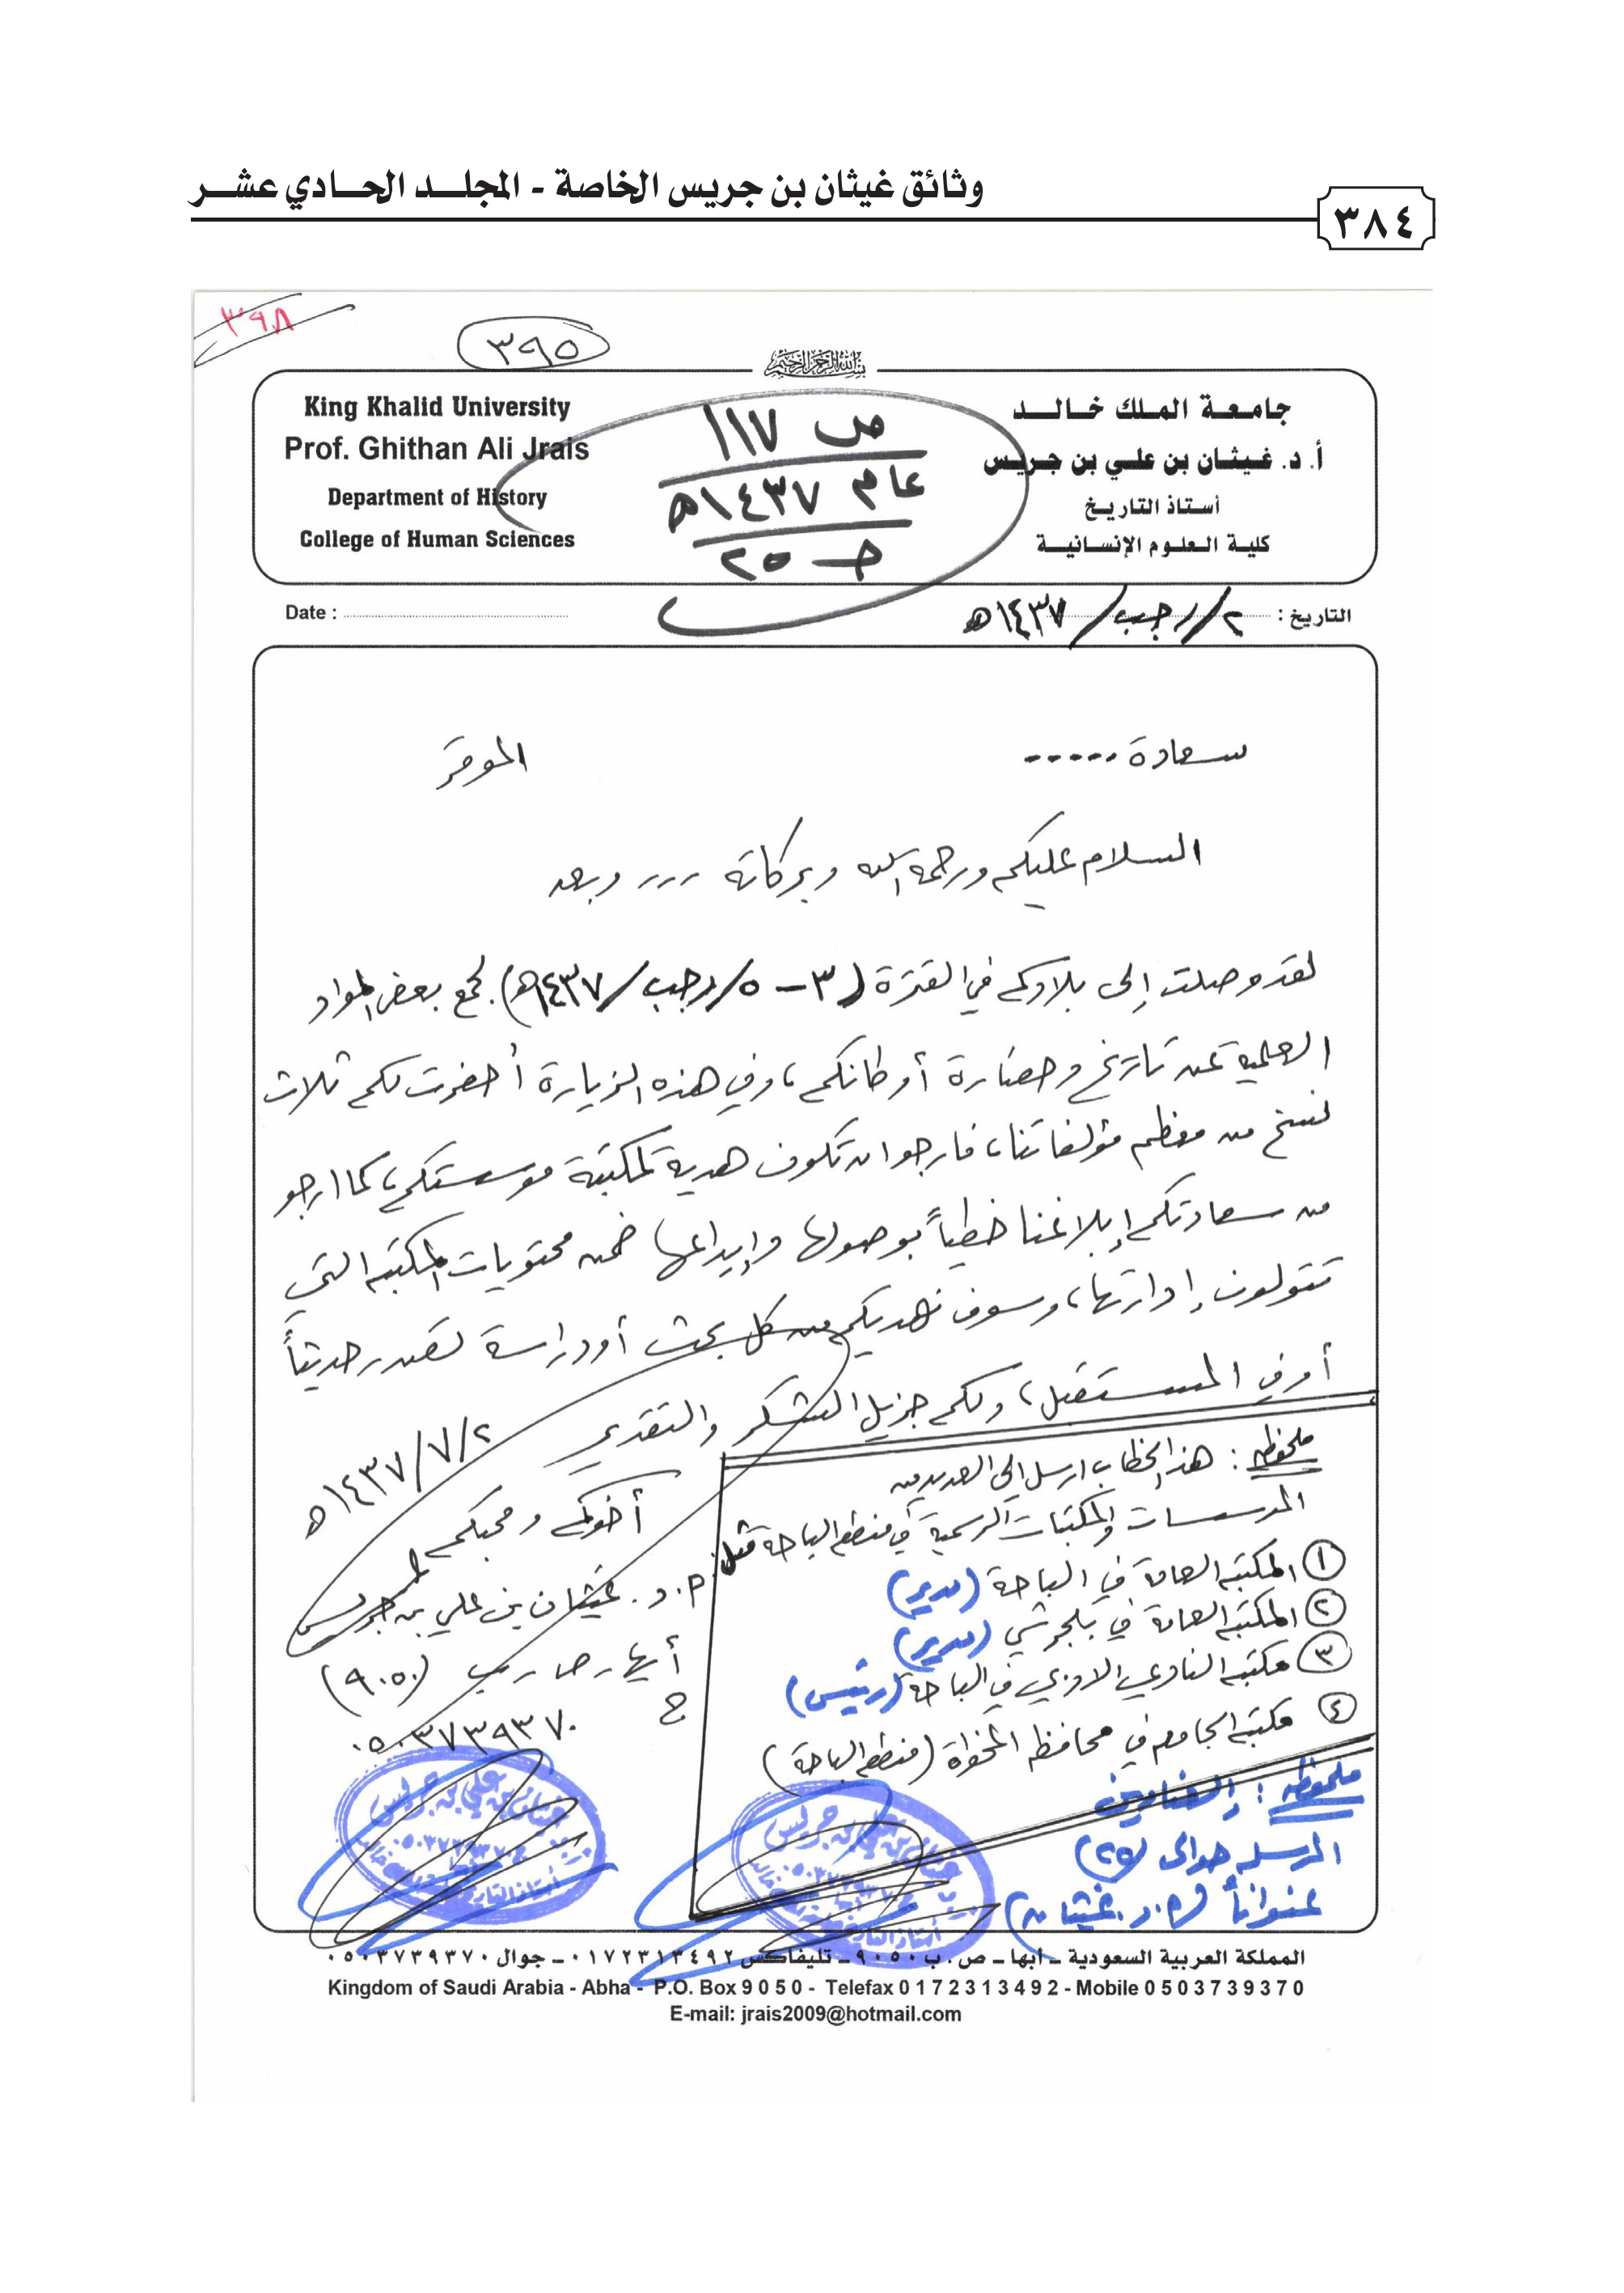 وثائق غيثان بن جريس الخاصة - المجلد الحادي عشر
٣٨٤
٣٩٨
٣٩٥
بسم الله الرحمن الرحيم
King Khalid University
Prof. Ghithan Ali Jrais
Department of History
College of Human Sciences
ص ١١٧
عام ١٤٣٧هـ
حـ ٢٥
جامعة الملك خالد
أ. د. غيثان بن علي بن جريس
أستاذ التاريخ
كلية العلوم الإنسانية
Date :
التاريخ : ٢/رجب/١٤٣٧هـ
سعادة ...... الموقر
السلام عليكم ورحمة الله وبركاته ,,, وبعد
لقد وصلت إلى بلادكم في الفترة (٣-٥/رجب/١٤٣٧هـ) لجمع بعض المواد
العلمية عن تاريخ وحضارة أوطانكم، وفي هذه الزيارة أحضرت لكم ثلاث
نسخ من معظم مؤلفاتنا، فارجوا ان تكون هدية لمكتبة موسستكم، كما ارجو
من سعادتكم إبلاغنا خطياً بوصولها وإيداعها ضمن محتويات المكتبه التي
تتولون إدارتها، وسوف نهديكم من كل بحث أو دراسة تصدر حديثاً
أو في المستقبل، ولكم جزيل الشكر والتقدير
١٤٣٧/٧/٢هـ
أخوكم ومحبكم
أ.د. غيثان بن علي بن جريس
أبها ـ ص ب (٩٠٥٠)
ج ٠٥٠٣٧٣٩٣٧٠
ملحوظه : هذا الخطاب ارسل الى العديد من
المؤسسات والمكتبات الرسمية في منطقه الباحة مثل:
١ المكتبه العامة في الباحة (مدير)
٢ المكتبه العامة في بلجرشي (مدير)
٣ مكتبه النادي الادبي في الباحة (رئيس)
٤ مكتبه الجامعه في محافظه المخواة (منطقه الباحة)
ملحوظه : العناوين
المرسله حوالى (٢٥)
عنواناً (أ.د. غيثان)
المملكة العربية السعودية ـ أبها ـ ص. ب ٩٠٥٠ ـ تليفاكس ٠١٧٢٣١٣٤٩٢ ـ جوال ٠٥٠٣٧٣٩٣٧٠
Kingdom of Saudi Arabia - Abha - P.O. Box 9050 - Telefax 0172313492 - Mobile 0503739370
E-mail: jrais2009@hotmail.com